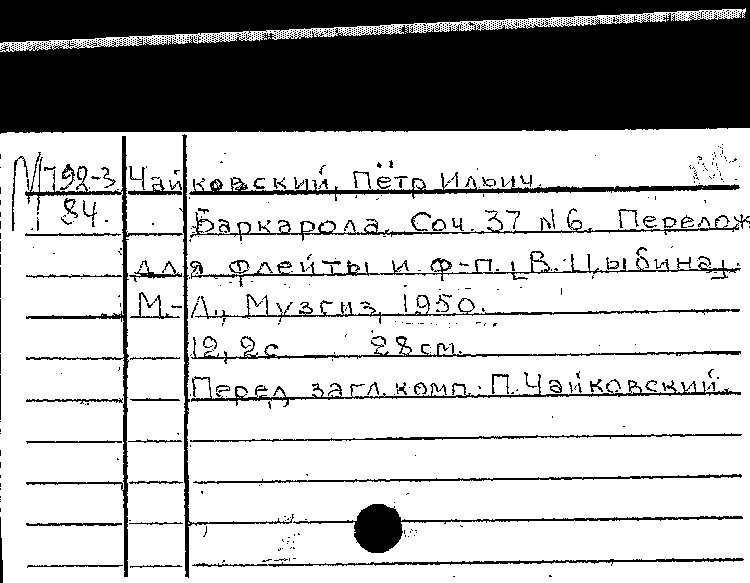 М792-3 Чайковский, Пётр Ильич.
84. Баркарола. Соч. 37 №6. Перелож
для флейты и ф-п. [В. Цыбина].
М.-Л., Музгиз, 1950.
12, 2с 28см.
Перед загл. комп.: П. Чайковский.